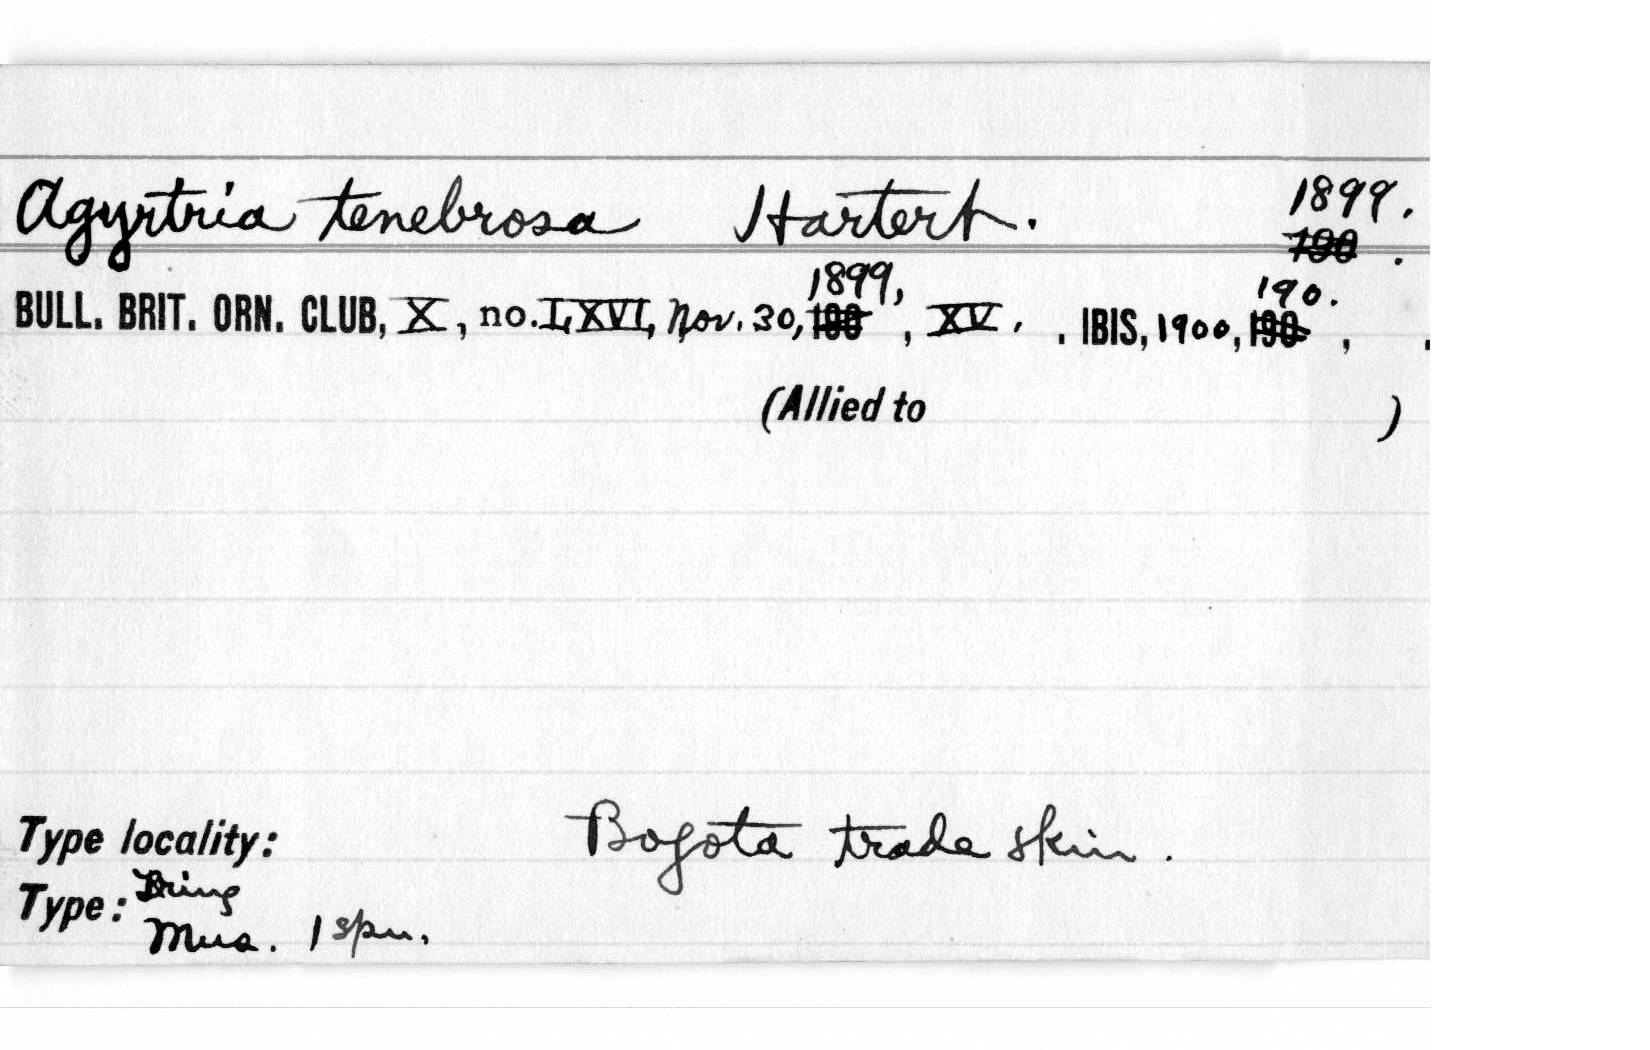 Agyrtria tenebrosa Hartert. 1899.
190 .
BULL. BRIT. ORN. CLUB, X, no. LXVI, Nov. 30, 1899, 190 , XV. . IBIS, 1900, 190. 190 , .
(Allied to )
Type locality: Bogota trade skin.
Type: Tring
Mus. 1 spm.